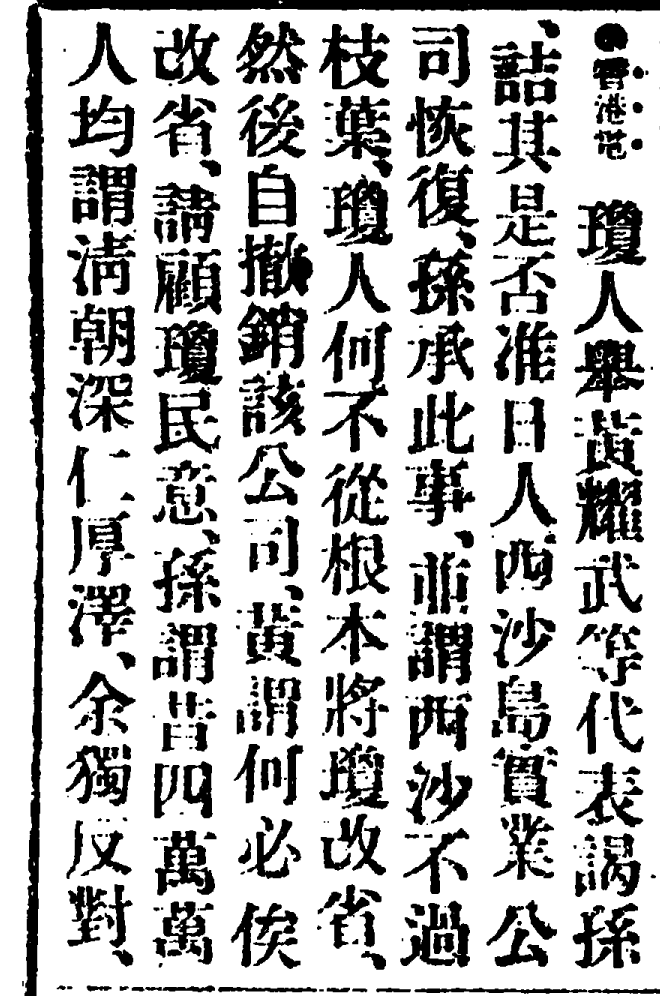 ●香港電 瓊人舉黃耀武等代表謁孫
、詰其是否准日人西沙島實業公
司恢復、孫承此事、並謂西沙不過
枝葉、瓊人何不從根本將瓊改省、
然後自撤銷該公司、黃謂何必俟
改省、請顧瓊民意、孫謂昔四萬萬
人均謂清朝深仁厚澤、余獨反對、